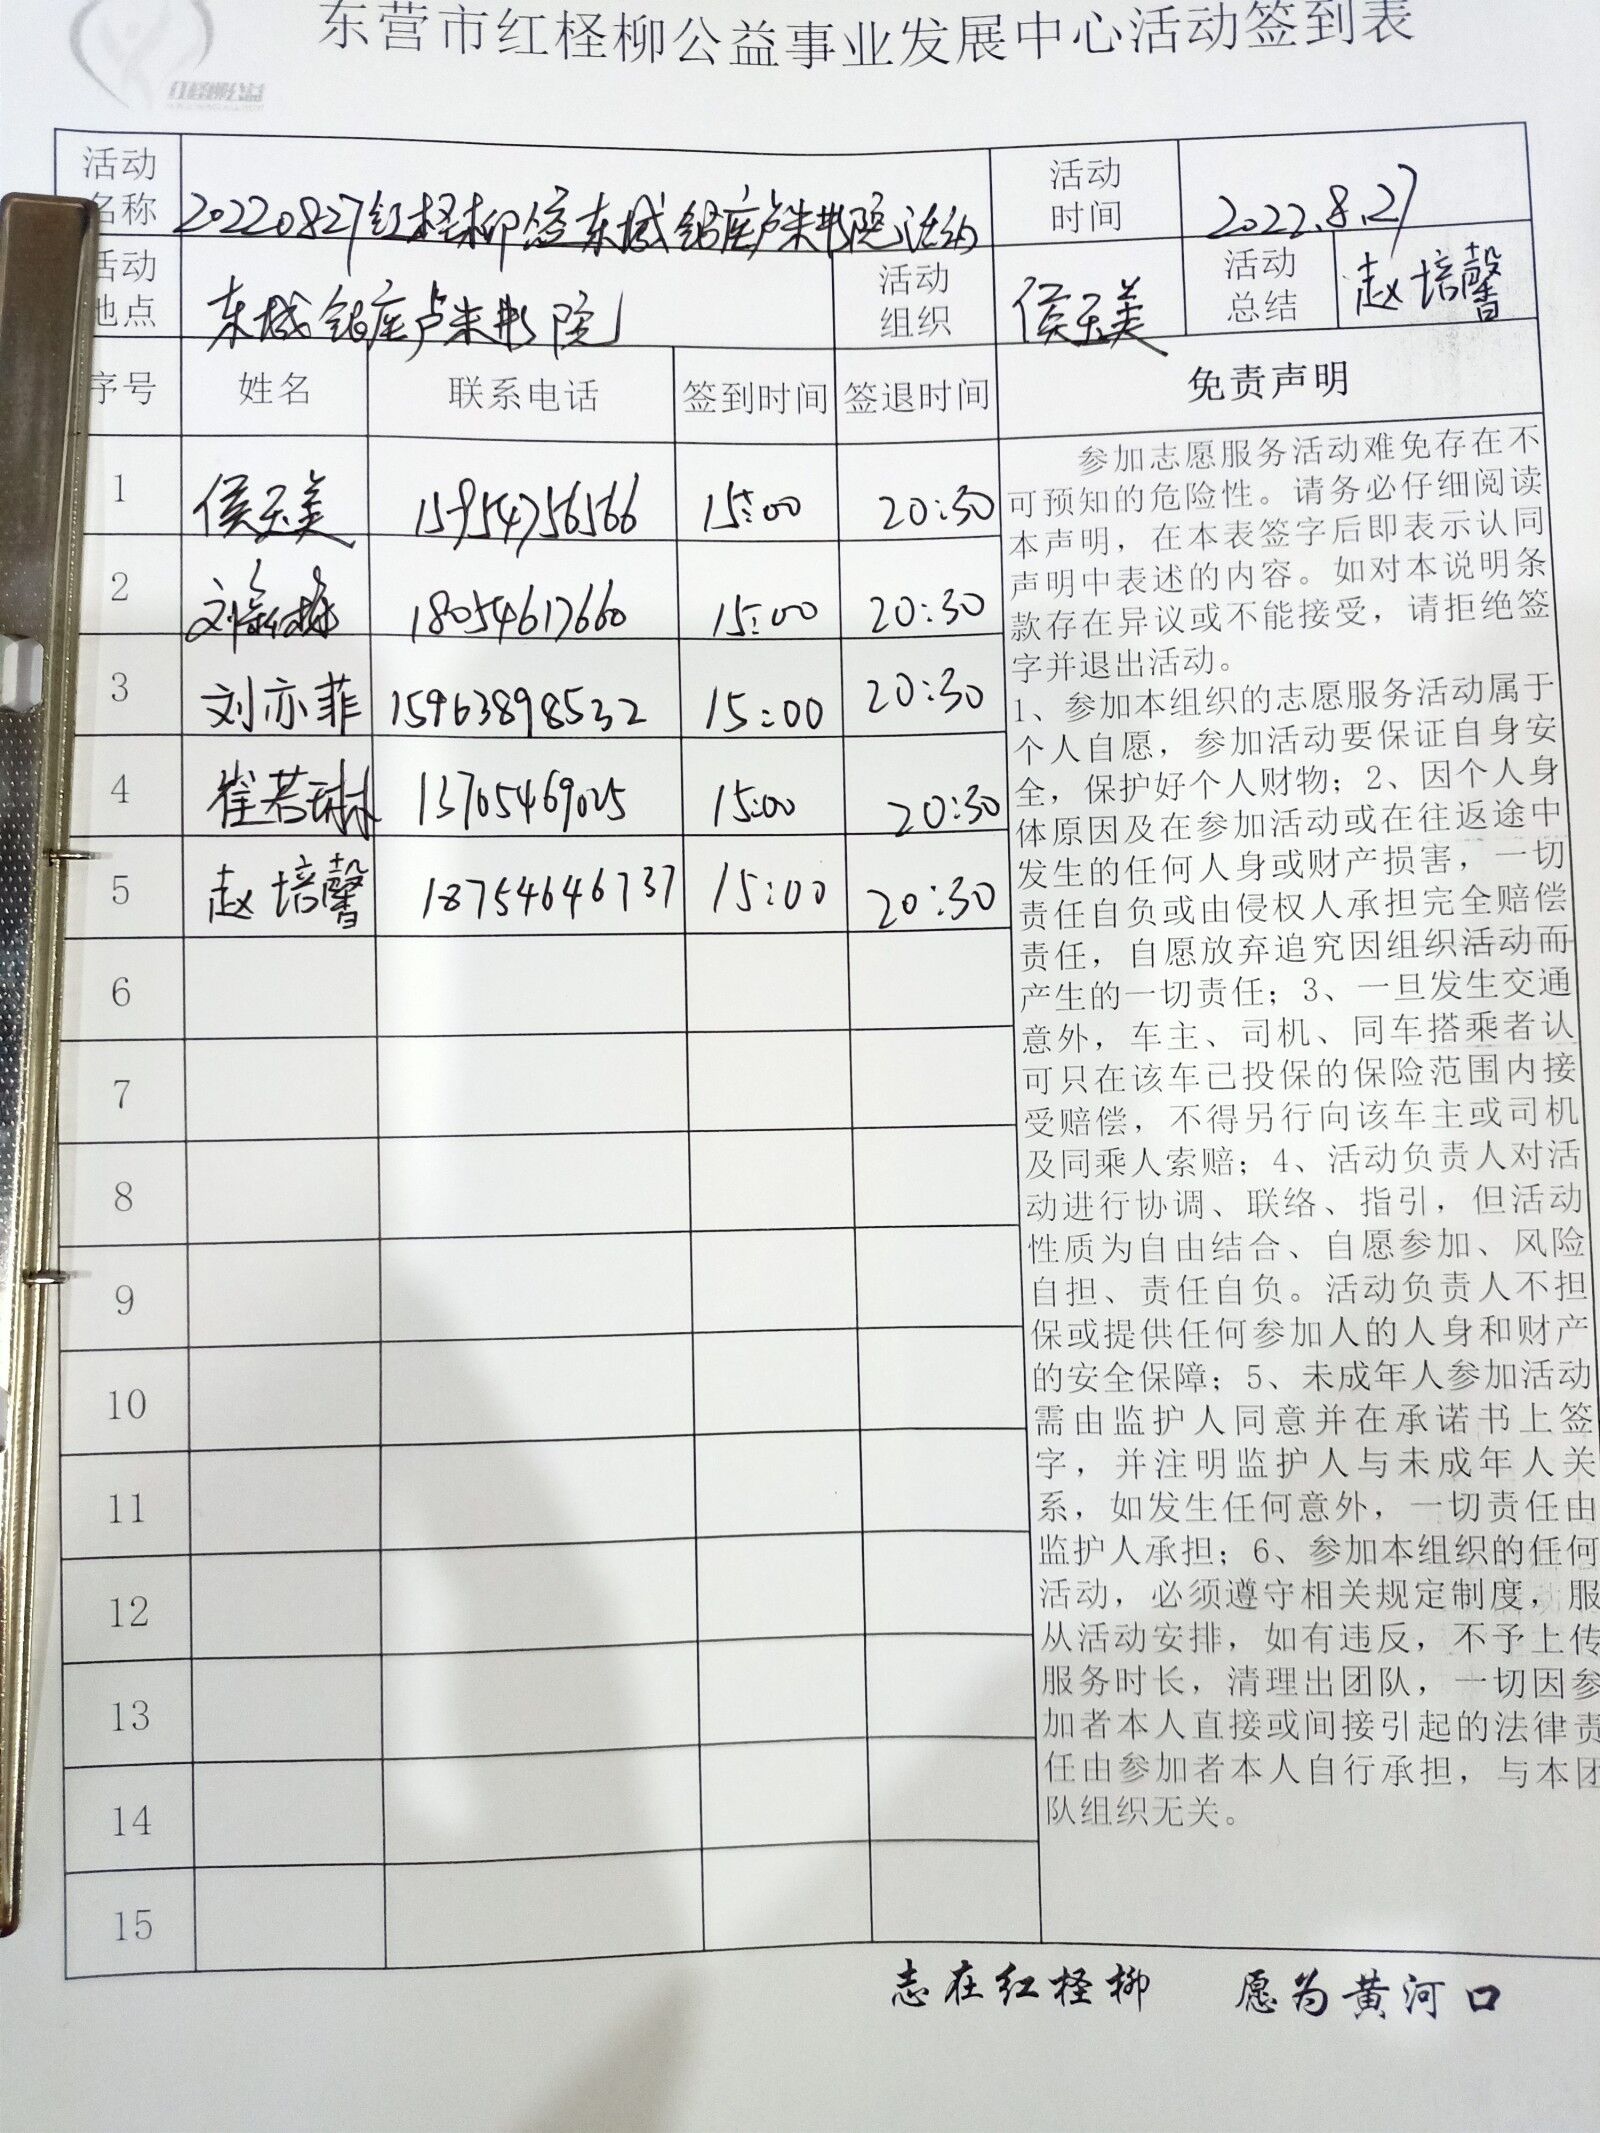 东营市红柽柳公益事业发展中心活动签到表
红柽柳公益
活动名称 20220827红柽柳 东城银座卢米影院活动 活动时间 2022.8.27
活动地点 东城银座卢米影院 活动组织 侯玉美 活动总结 赵培馨
序号 姓名 联系电话 签到时间 签退时间 免责声明
1 侯玉美 15954756566 15:00 20:30
2 刘 18054617660 15:00 20:30
3 刘亦菲 15963898532 15:00 20:30
4 崔若琳 13705469025 15:00 20:30
5 赵培馨 18754646737 15:00 20:30
6
7
8
9
10
11
12
13
14
15
参加志愿服务活动难免存在不
可预知的危险性。请务必仔细阅读
本声明，在本表签字后即表示认同
声明中表述的内容。如对本说明条
款存在异议或不能接受，请拒绝签
字并退出活动。
1、参加本组织的志愿服务活动属于
个人自愿，参加活动要保证自身安
全，保护好个人财物；2、因个人身
体原因及在参加活动或在往返途中
发生的任何人身或财产损害，一切
责任自负或由侵权人承担完全赔偿
责任，自愿放弃追究因组织活动而
产生的一切责任；3、一旦发生交通
意外，车主、司机、同车搭乘者认
可只在该车已投保的保险范围内接
受赔偿，不得另行向该车主或司机
及同乘人索赔；4、活动负责人对活
动进行协调、联络、指引，但活动
性质为自由结合、自愿参加、风险
自担、责任自负。活动负责人不担
保或提供任何参加人的人身和财产
的安全保障；5、未成年人参加活动
需由监护人同意并在承诺书上签
字，并注明监护人与未成年人关
系，如发生任何意外，一切责任由
监护人承担；6、参加本组织的任何
活动，必须遵守相关规定制度，服
从活动安排，如有违反，不予上传
服务时长，清理出团队，一切因参
加者本人直接或间接引起的法律责
任由参加者本人自行承担，与本团
队组织无关。
志在红柽柳 愿为黄河口